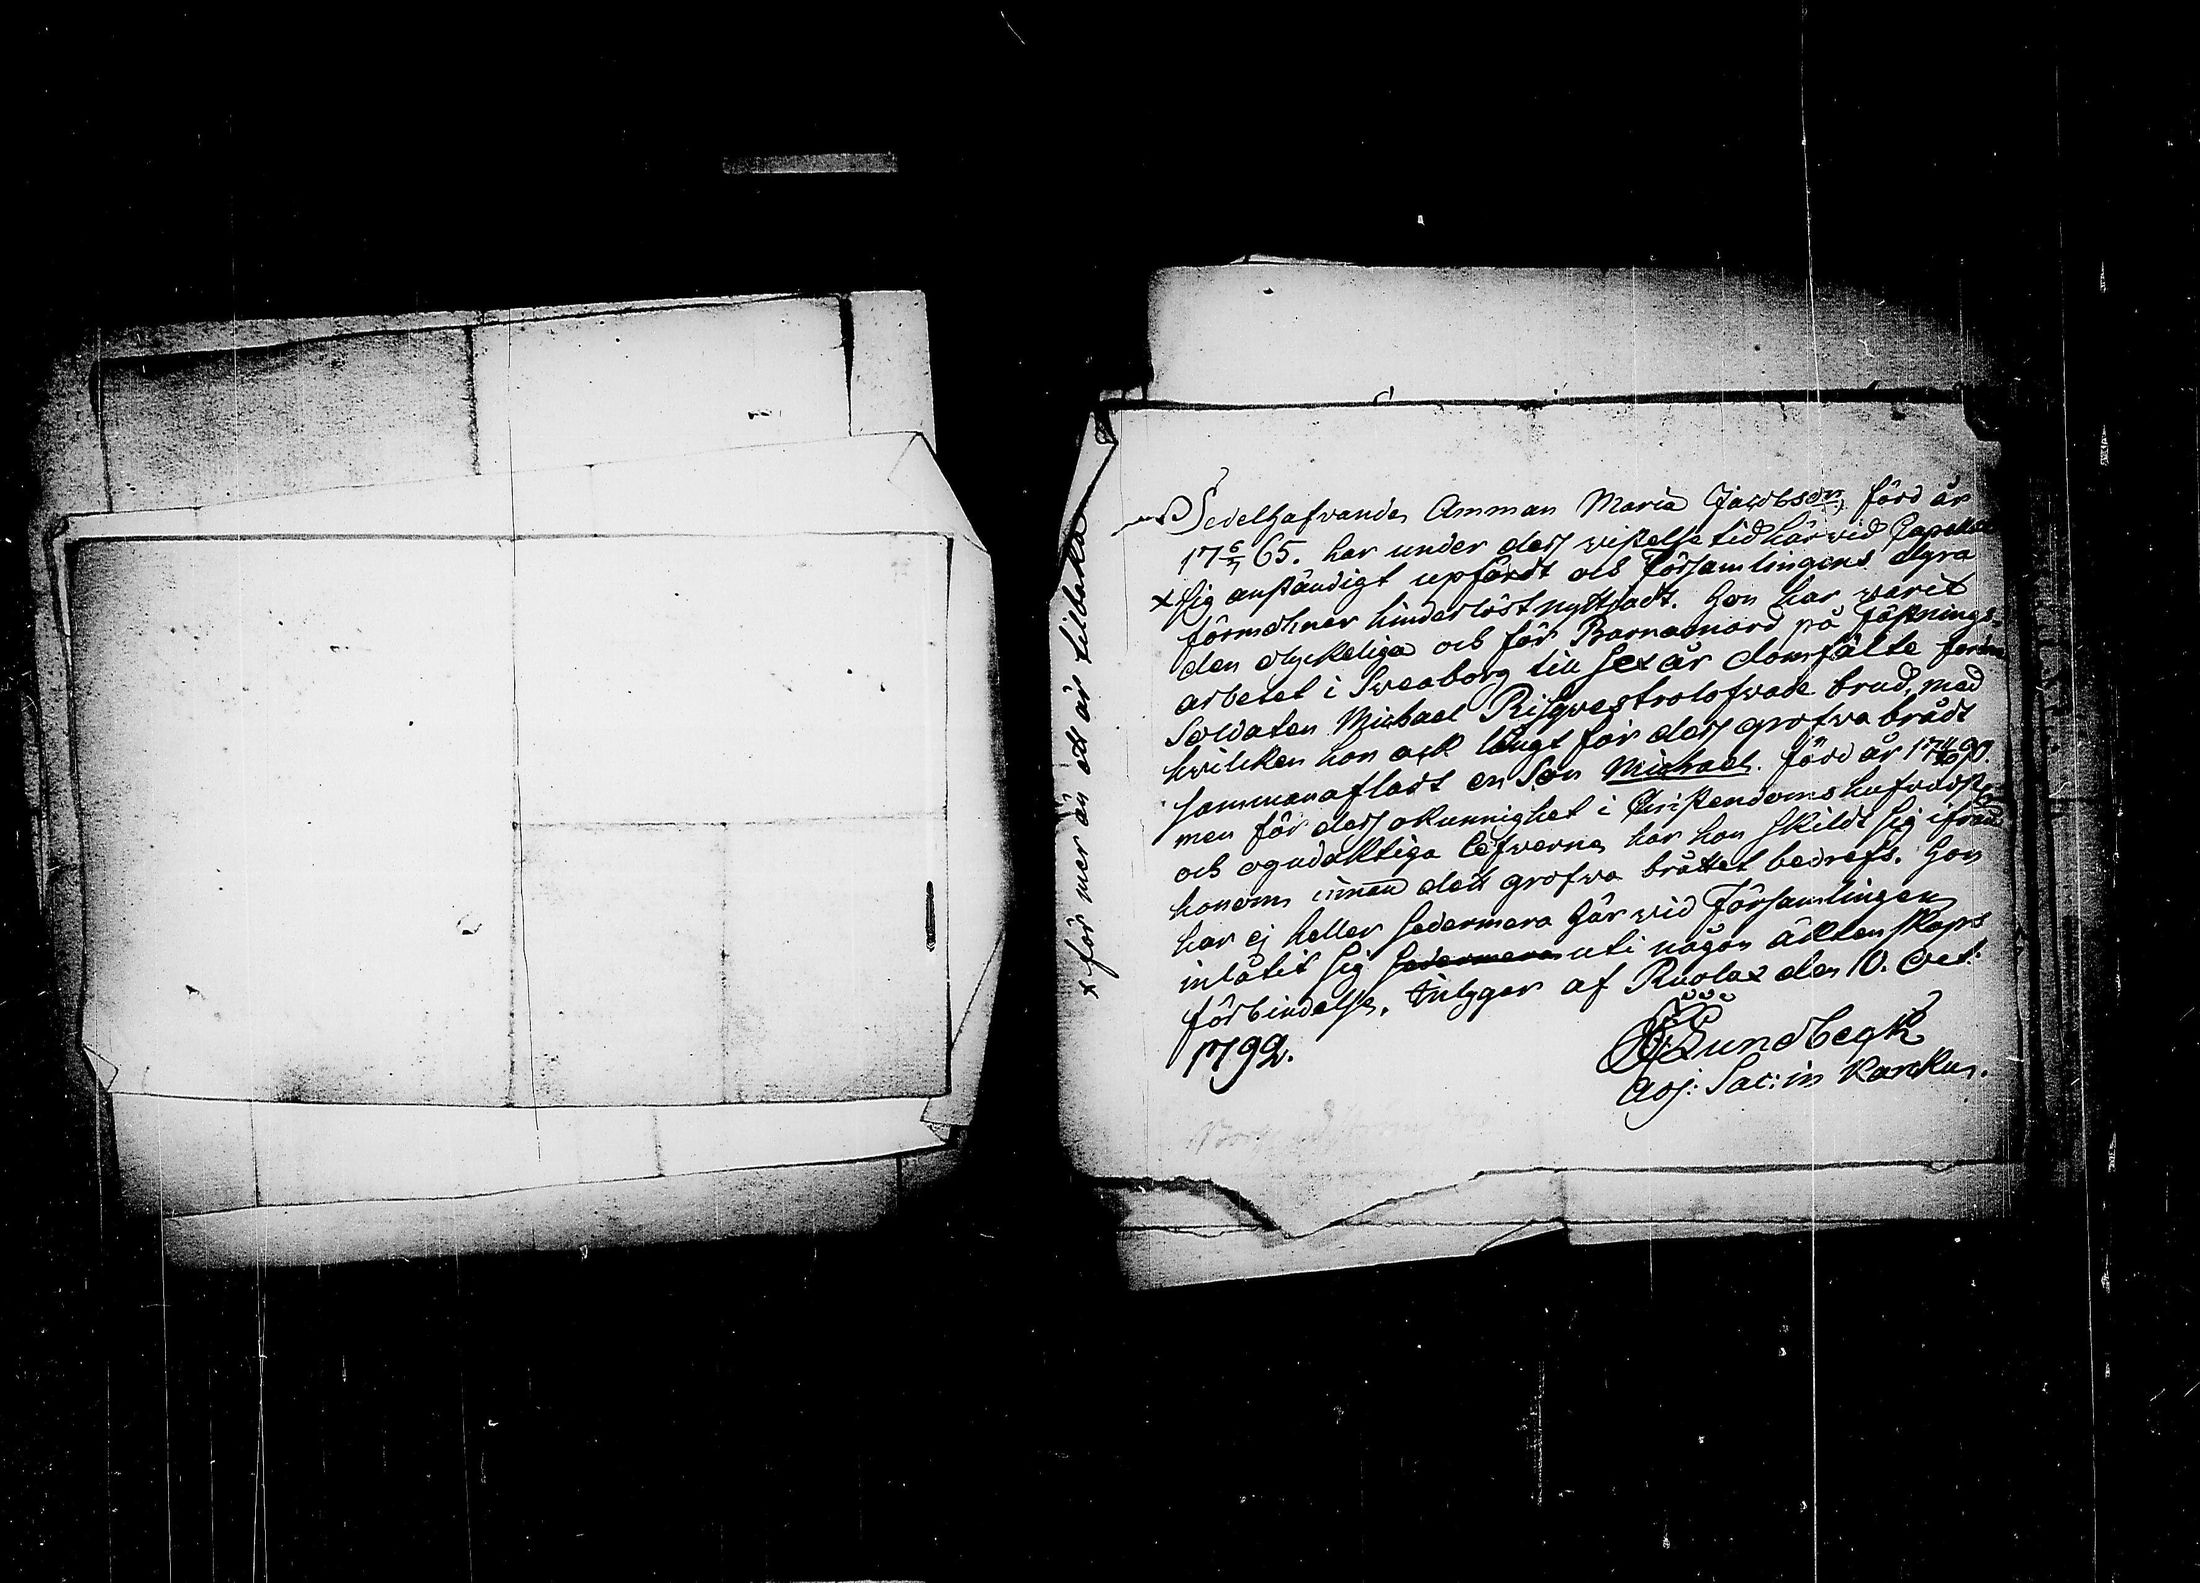 Sedelhafvande Amman Maria Jacobsdr förd år
17 6/7 65. har under dess vistelse tid här vid Capellet
x sig anständigt upfördt och Församlingens dyra
förmohner hinderlöst nyttjadt. Hon har warit
den olyckeliga och för Barnamord på Fästnings-
arbetet i Sveaborg till sex år domfälte förra
Soldaten Michael Risqvas trolofvade brud, med
hvilcken hon ock långt för dess grofva brådt
sammanafladt en Son Michael. förd år 17 11/10 90.
men för dess okunnighet i Christendoms hufvudst
och ogudaktiga lefverne har hon skildt sig ifrån
honom innan dett grofva bråttet bedrefs. Hon
har ej heller sedermera här vid Församlingen
inlåtit sig sedermera uti någon äcktenskaps
förbindelse. Intygar af Ruolax den 10. Oct:
1792.
Lundbegk
Adj: Sac: in Karkku.
x för mer än ett år tillbaka